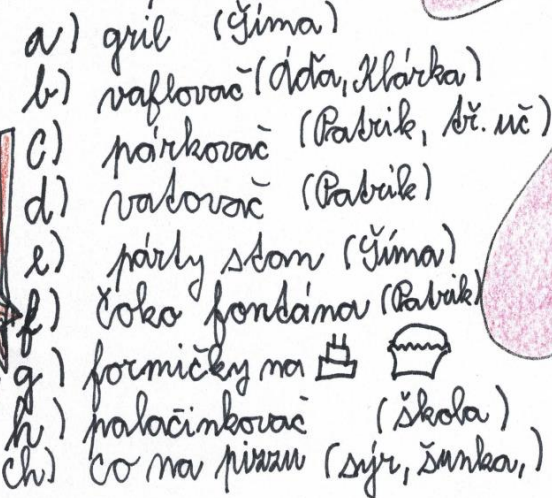 a) gril (Šíma)
b) vaflovač (Áďa, Klárka)
c) párkovač (Patrik, tř. uč)
d) vatovač (Patrik)
e) párty stan (Šíma)
f) čoko fontána (Patrik)
g) formičky na
h) palačinkovač (škola)
ch) co na pizzu (sýr, šunka,)